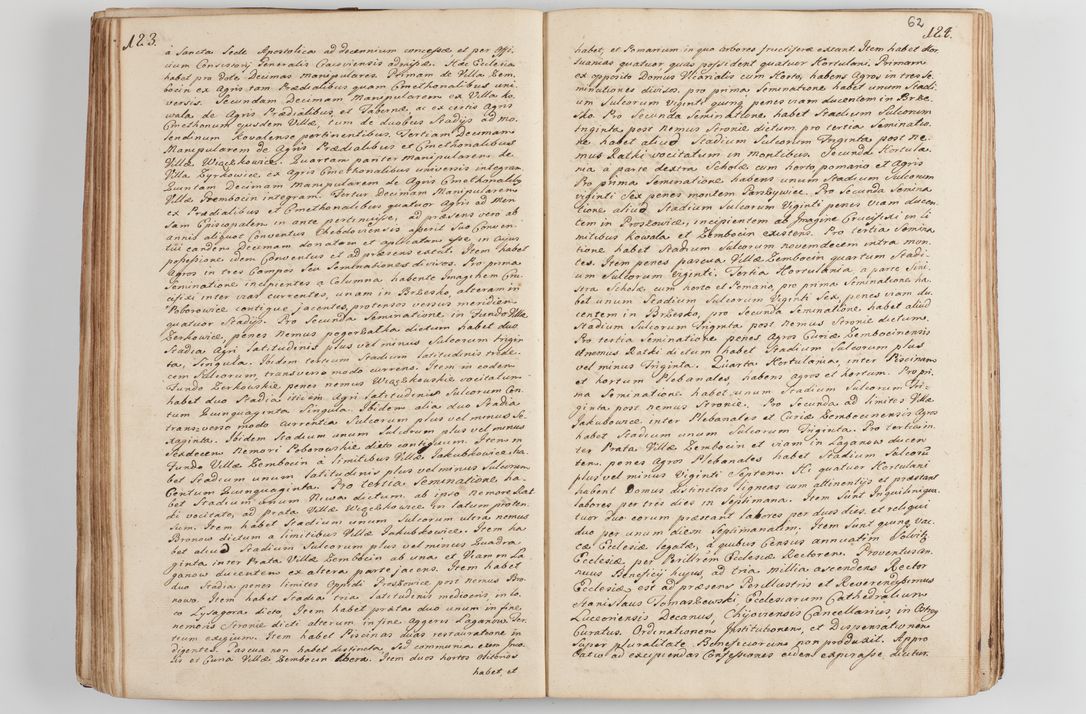 123.
à Sancta Sede Apostolica ad decennium concessæ et per Offi-
cium Consistorij Generalis Cracoviensis admissæ. Hæc Ecclesia
habet pro Dote Decimas Manipulares. Primam de Villa Zem-
bocin ex Agris tam Prædialibus quam Cmethonalibus uni-
versis. Secundam Decimam Manipularem ex Villa Ko-
wala de Agris Prædialibus et Tabernæ, ac ex certis Agris
Cmethonum ejusdem Villæ, tum de duobus Stadijs ad mo-
lendinum Kovalense pertinentibus. Tertiam Decimam
Manipularem de Agris Prædialibus et Cmethonalibus
Villæ Więckowice. Quartam pariter manipularem de
Villa Zyrkowice, ex Agris Cmethonalibus universis integram.
Quintam Decimam Manipularem de Agris Cmethonalibus
Villæ Przembocin integram. Fertur Decimam Manipularem
ex Prædialibus et Cmethonalibus quatuor Agris ad Men-
sam Episcopalem in ante pertinuisse, ad præsens vero ab
annis aliquot Conventus Chebdoviensis asserit Suo Conven-
tui eandem Decimam donatam et applicatam esse in cujus
possessione idem Conventus et ad præsens extat. Item habet
Agros in tres Campos Seu Seminationes divisos. Pro prima
Seminatione incipientes a Columna habente Imaginem Cru-
cifixi inter vias currentes, unam in Brzesko, alteram in
Poborowice contigue jacentes, protensos versus meridiem
quatuor Stadijs. Pro Secunda Seminatione in Fundo Villæ
Zerkowice, penes nemus pogorzałka dictum habet duo
Stadia Agri latitudinis plus vel minus Sulcorum trigin-
ta, Singula. Ibidem tertium Stadium latitudinis trede-
cim Sulcorum, transverso modo currens. Item in eodem
Fundo Zerkowskie penes nemus Więckowskie vocitatum
habet duo Stadia itidem Agri latitudinis Sulcorum Cen-
tum Quinquaginta Singula. Ibidem alia duo Stadia
transverso modo currentia Sulcorum plus vel minus Se-
xaginta. Ibidem Stadium unum Sulcorum plus vel minus
Sexdecem Nemori Poborowskie dicto contiguum. Item in
Fundo Villæ Zembocin à limitibus Villæ Jakubkowice ha-
bet Stadium unum latitudinis plus vel minus Sulcorum
Centum Quinquaginta. Pro tertia Seminatione ha-
bet Stadium unum Niwa dictum, ab ipso nemore Rat-
ki vocitate, ad Prata Villæ Więckowice in latum proten-
sum. Item habet Stadium unum Sulcorum ultra nemus
Bronow dictum a limitibus Villæ Jakubkowice. Item ha-
bet aliud Stadium Sulcorum plus vel minus Quadra-
ginta inter Prata Villæ Zembocin ab una et Viam in La-
ganow ducentem ex altera parte jacens. Item habet
duo Stadia penes limites Oppidi Proszowice post nemus Bro-
nowo. Item habet Stadia tria latitudinis mediocris, in lo-
co Lysagora dicto. Item habet prata duo unum in fine
nemoris Stronie dicti alterum in fine Aggeris Laganow Ter-
tium exiguum. Item habet Piscinas duas restauratione in-
digentes. Pascua non habet distincta, Sed communia cum Inco-
lis et Curia Villæ Zembocin libera. Item duos hortos Olitorios
habet, et

62
124.
habet, et Pomarium in quo arbores fructiferæ extant. Item habet Hor-
tulanias quatuor quas possident quatuor Hortulani. Primam
ex opposito Domus Vicarialis cum Horto, habens Agros in tres Se-
minationes divisos, pro prima Seminatione habet unum Stadi-
um Sulcorum Viginti quinq penes viam ducentem in Brze-
sko. Pro Secunda Seminatione, habet Stadium Sulcorum
Triginta, post nemus Stronie dictum, pro tertia Seminatio-
ne habet aliud Stadium Sulcorum Triginta post ne-
mus Ratki vocitatum in montibus. Secunda Hortula-
nia a parte dextra Scholæ cum horto pomario et Agris
Pro prima Seminatione habens unum Stadium Sulcorum
viginti Sex penes montem Parszywiec. Pro Secunda Semina-
tione aliud Stadium Sulcorum Viginti penes viam ducen-
tem in Proszowice, incipientem ab Imagine Crucifixi in li-
mitibus Kowala et Zembocin existens. Pro tertia Semina-
tione habet Stadium Sulcorum novemdecem intra mon-
tes. Item penes pascua Villæ Zembocin quartum Stadi-
um Sulcorum Viginti. Tertia Hortulania a parte Sini-
stra Scholæ cum horto et Pomario, pro prima Seminatione ha-
bet unum Stadium Sulcorum Viginti Sex, penes viam du-
centem in Brzesko, pro Secunda Seminatione habet aliud
Stadium Sulcorum Triginta post nemus Stronie dictum.
Pro tertia Seminatione penes Agros Curiæ Zembocinensis
Nnemus Ratki dictum habet Stadium Sulcorum plus
vel minus Triginta. Quarta Hortulania, inter Piscinam
et hortum Plebanales, habens agros et hortum. Pro pri-
ma Seminatione habet unum Stadium Sulcorum Tri-
ginta post nemus Stronie. Pro Secunda ad limites Villæ
Jakubowice inter Plebanales et Curiæ Zembocinensis Agros
habet Stadium unum Sulcorum Triginta. Pro tertia in-
ter Prata Villæ Zembocin et viam in Laganow ducen-
tem, penes Agros Plebanales habet Stadium Sulcorũ
plus vel minus Viginti Septem. Hi quatuor Hortulani
habent Domus distinctas ligneas cum attinentijs et præstant
labores per tres dies in Septimana. Item Sunt Inquilini qua-
tuor duo eorum præstant labores per duos dies, et reliqui
duo per unum diem Septimanatim. Item Sunt quinq Vac-
cæ Ecclesiæ legatæ, à quibus Census annuatim Solvitur
Ecclesiæ per Perillrem Ecclesiæ Rectorem. Proventus an-
nuus Beneficij hujus, ad tria millia ascendens Rector
Ecclesiæ est ad præsens Perillustris et Reverendissimus
Stanislaus Tomaszewski Ecclesiarum Cathedralium
Luceoriensis Decanus, Chijoviensis Cancellarius, in Cetery
Curatus. Ordinationem, Institutionem, et Dispensationem
Super pluralitate Beneficiorum non produxit. Appro-
batio ad excipiendas Confessiones eidem expirasse dicitur.